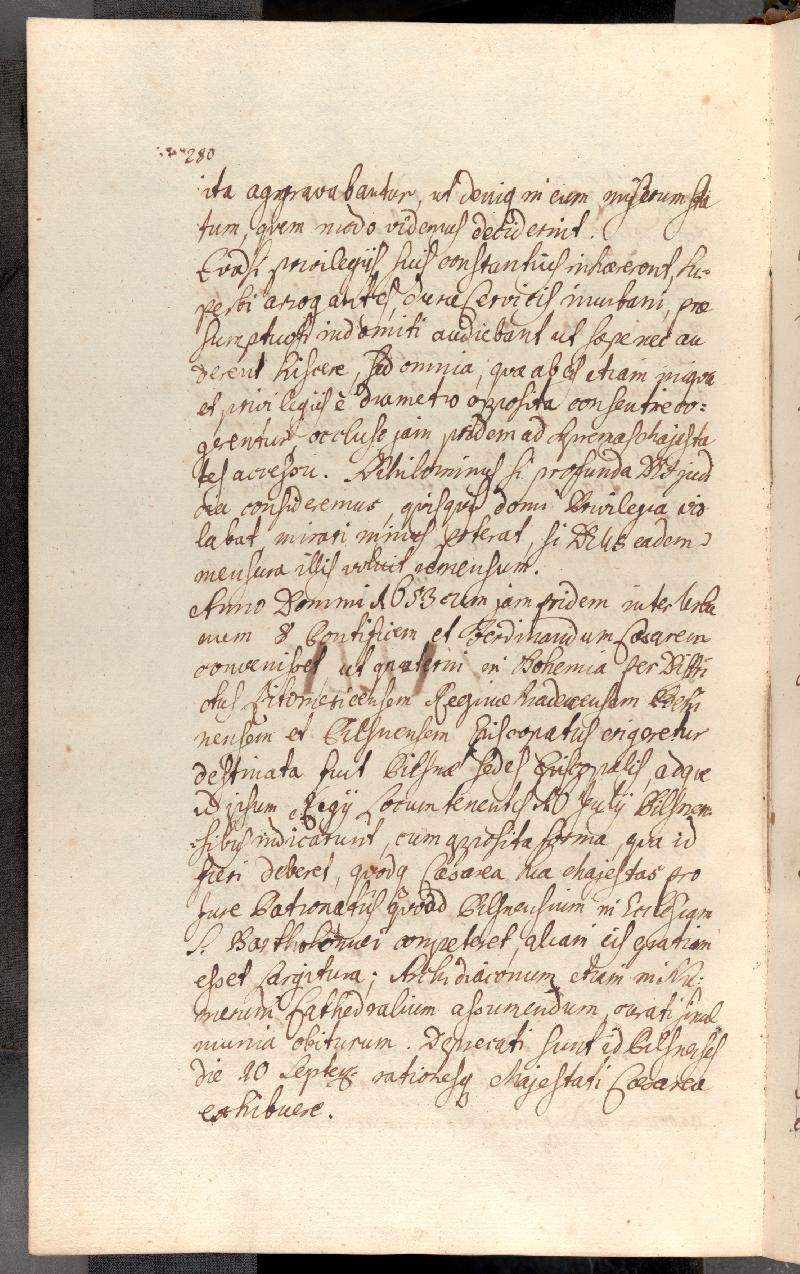 280
ita aggravabantur, ut deniq in eum miserum sta
tum, quem modo videmus deciderint.
privilegijs suis constantius inhaererent, su-
perbi arrogantes, durae Cervicis inurbani, prae
sumptuosi indomiti audiebant ut saepe nec au
derent hiscere, sed omnia, quae ab eis etiam iniqua
et privilegijs è diametro opposita consentire co=
gerentur occluso jam pridem ad supremas Majesta
tes accessu. Nihilominus si profunda DEI jud
cia consideremus, quisquis domi Privilegia vio
labat mirari minus poterat, si DEUS eadem
mensura illis voluit remensum.
Anno Domini 1653 cum jam pridem inter Urba
num 8 Pontificem et Ferdinandum Caesarem
convenisset ut quaterni in Bohemia per Distri
ctus Litomericensem Reginae hradecensem Bole
nensem et Pilsnensem Episcopatus erigeretur
destinata fuit Pilsnae sedes Episcopalis, adque
id ipsum Regij Locum tenentes 10 Julij Pilsnen-
sibus indicarunt, cum apposita forma, qua id
fieri deberet, quodq Caesarea sua Majestas pro
Jure Patronatus quoad Pilsnensium in Ecclesiam
S. Bartholomaei competeret, aliam eis gratiam
esset largitura; Archidiaconum etiam in Nu-
merum Cathedralium assumendum, curati simul
munia obiturum. Deprecati sunt id Pilsnenses
die 10 Septem rationesq Majestati Caesarea
exhibuere.